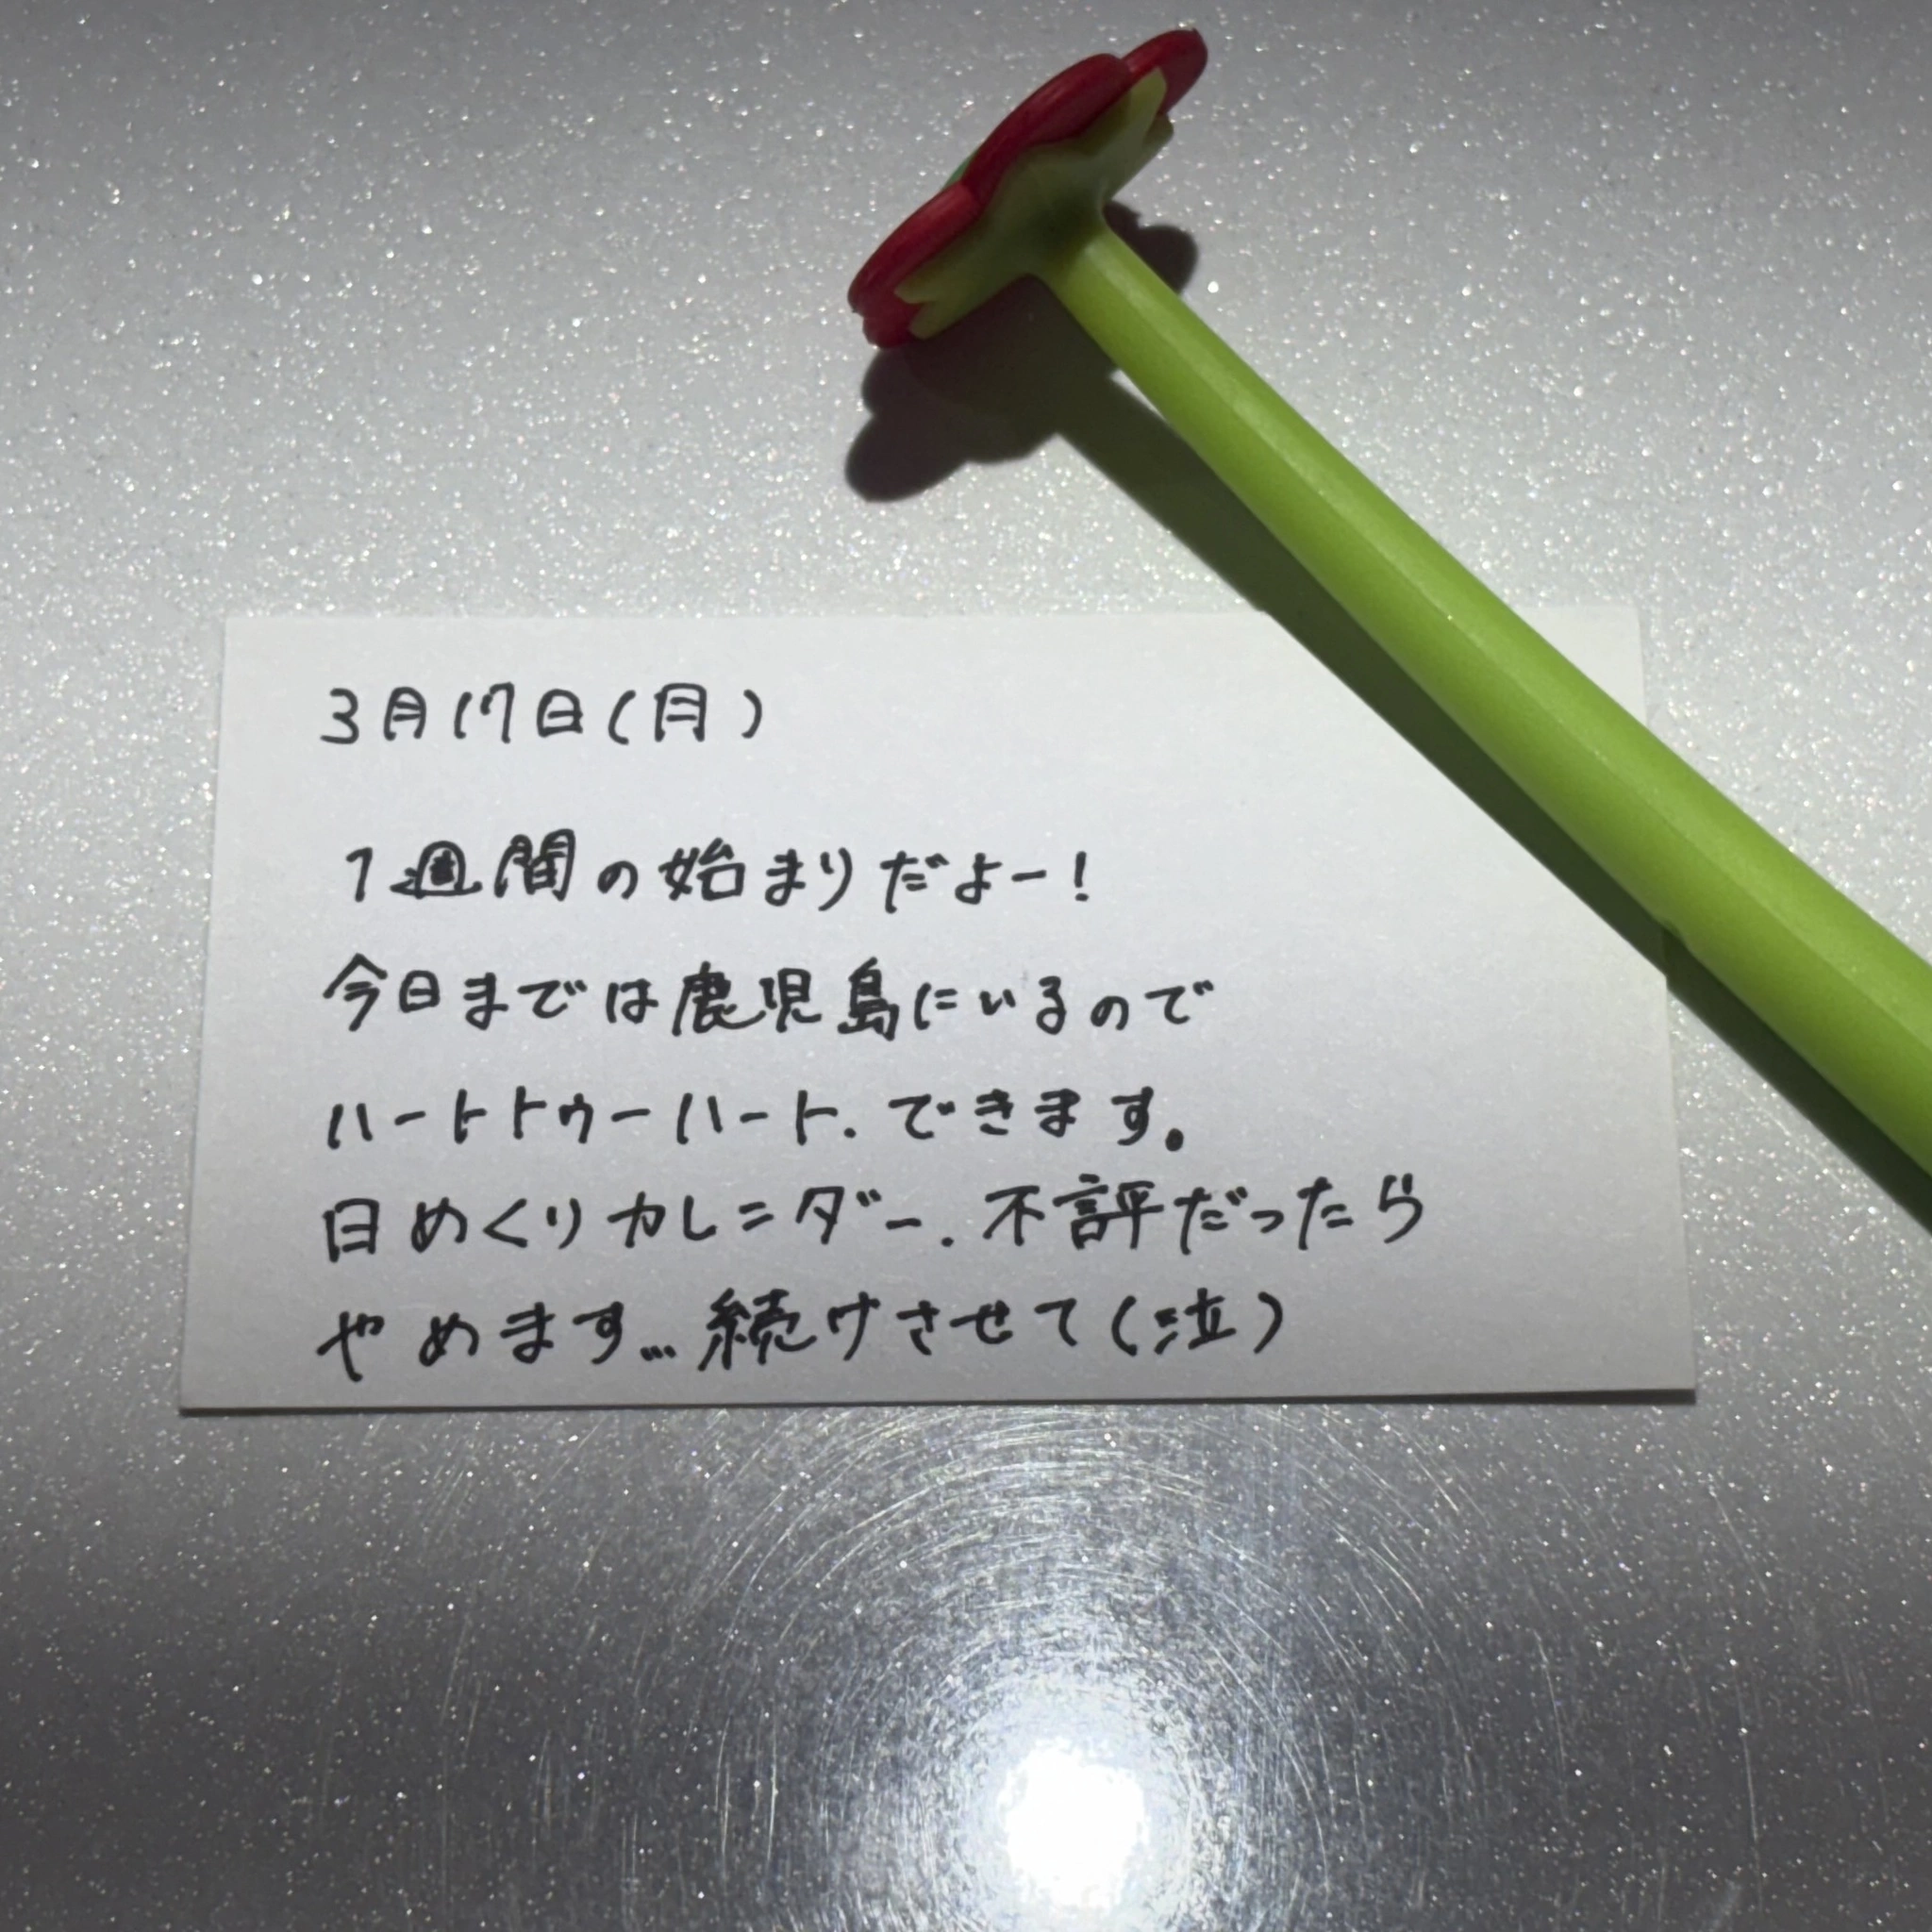 3月17日(月)
1週間の始まりだよー!
今日までは鹿児島にいるので
ハートトゥーハート.できます。
日めくりカレンダー.不評だったら
やめます...続けさせて(泣)